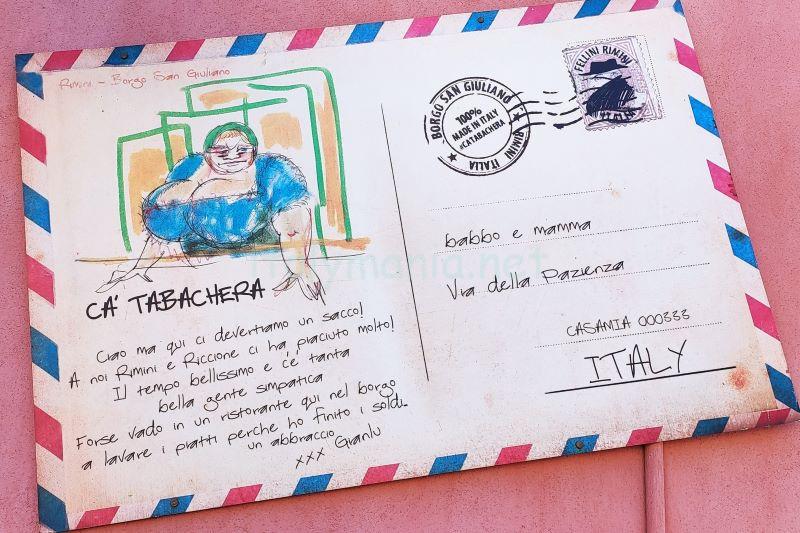 Rimini - Borgo San Giuliano
CA' TABACHERA
Ciao ma qui ci devertiamo un sacco!
A noi Rimini e Riccione ci ha praciuto molto!
Il tempo bellissimo e c'é tanta
bella gente simpatica
Forse vado in un ristorante qui nel borgo
a lavare i piatti perche ho finito i soldi..
un abbraccio
xxx Gianlu
BORGO SAN GIULIANO
RIMINI ITALIA
100%
MADE IN ITALY
#CATABACHERA
FELLINI RIMINI
babbo e mamma
Via della Pazienza
CASAMIA 000333
ITALY
italymania.net